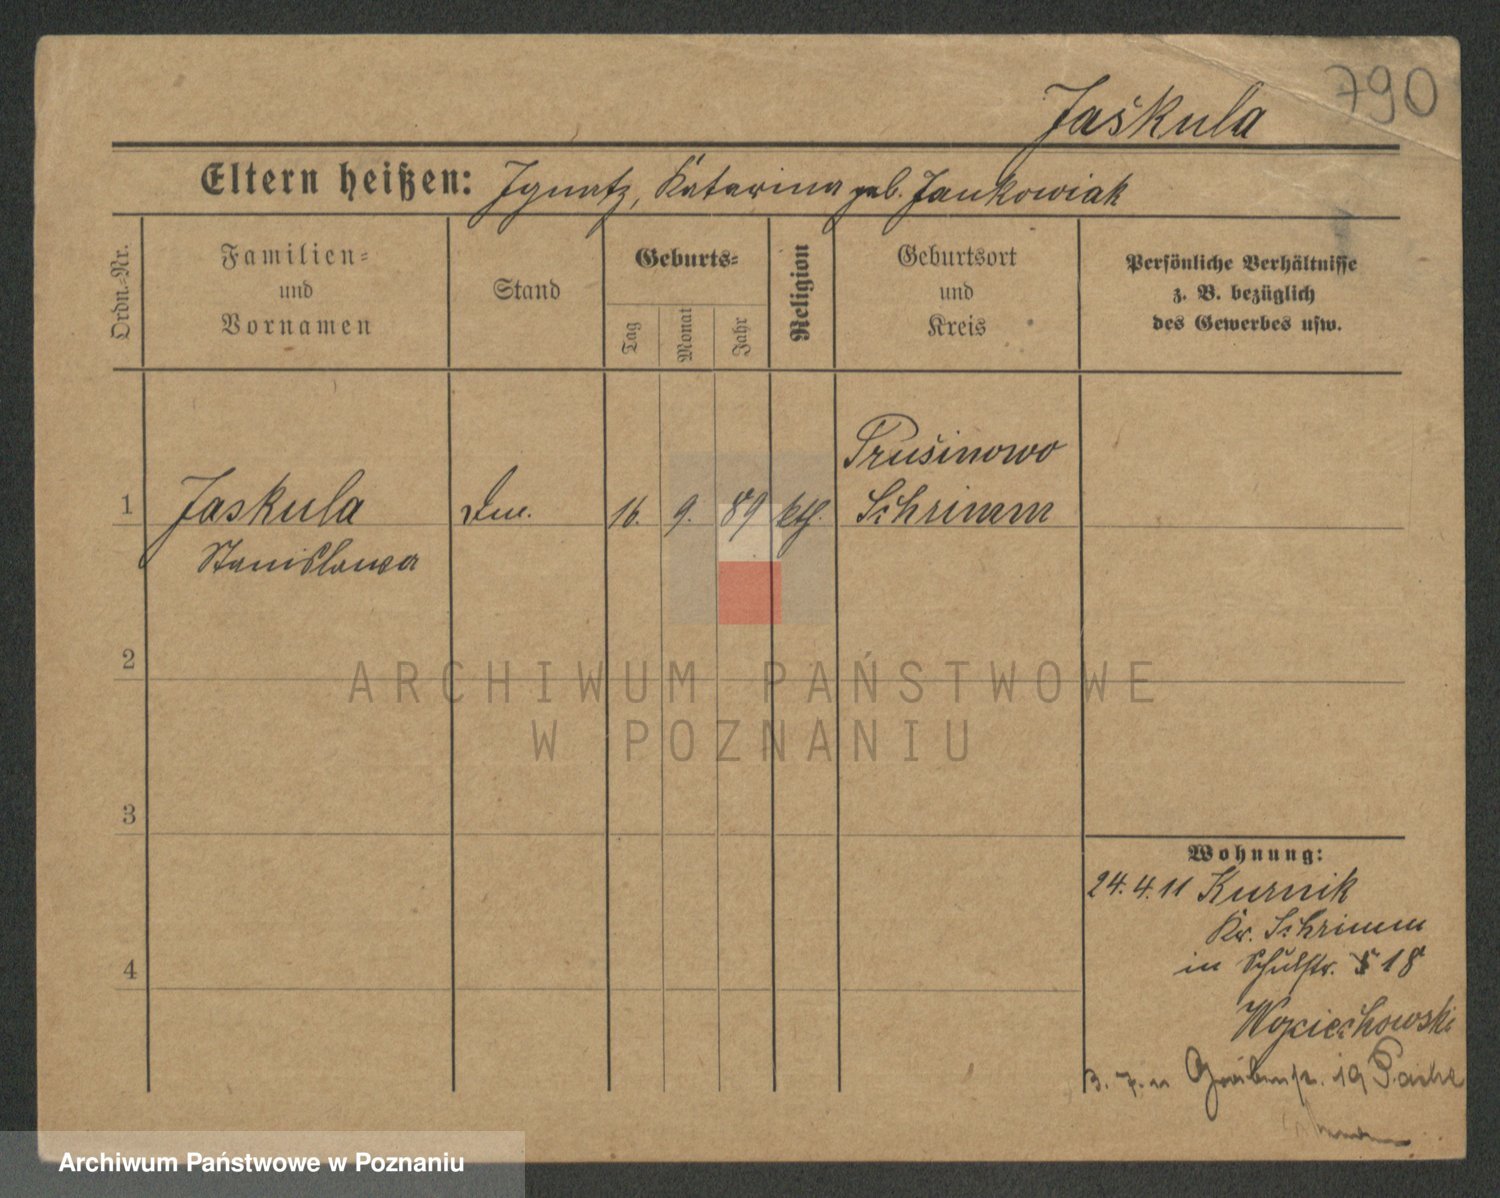 790
Jaskula
Eltern heißen: Ignatz, Katarina geb. Jankowiak
Ordn.=Nr.
Familien=
und
Vornamen
Stand
Geburts=
Tag
Monat
Jahr
Religion
Geburtsort
und
Kreis
Persönliche Verhältnisse
z. B. bezüglich
des Gewerbes usw.
1 Jaskula 16. 9. 89 kth. Prusinowo
Stanislawa Schrimm
2
3
4
Wohnung:
24.4.11 Kurnik
Kr. Schrimm
in Schulstr. 18
Woyciechowski
3. 7. 11 Grabenstr. 19
ARCHIWUM PAŃSTWOWE
W POZNANIU
Archiwum Państwowe w Poznaniu